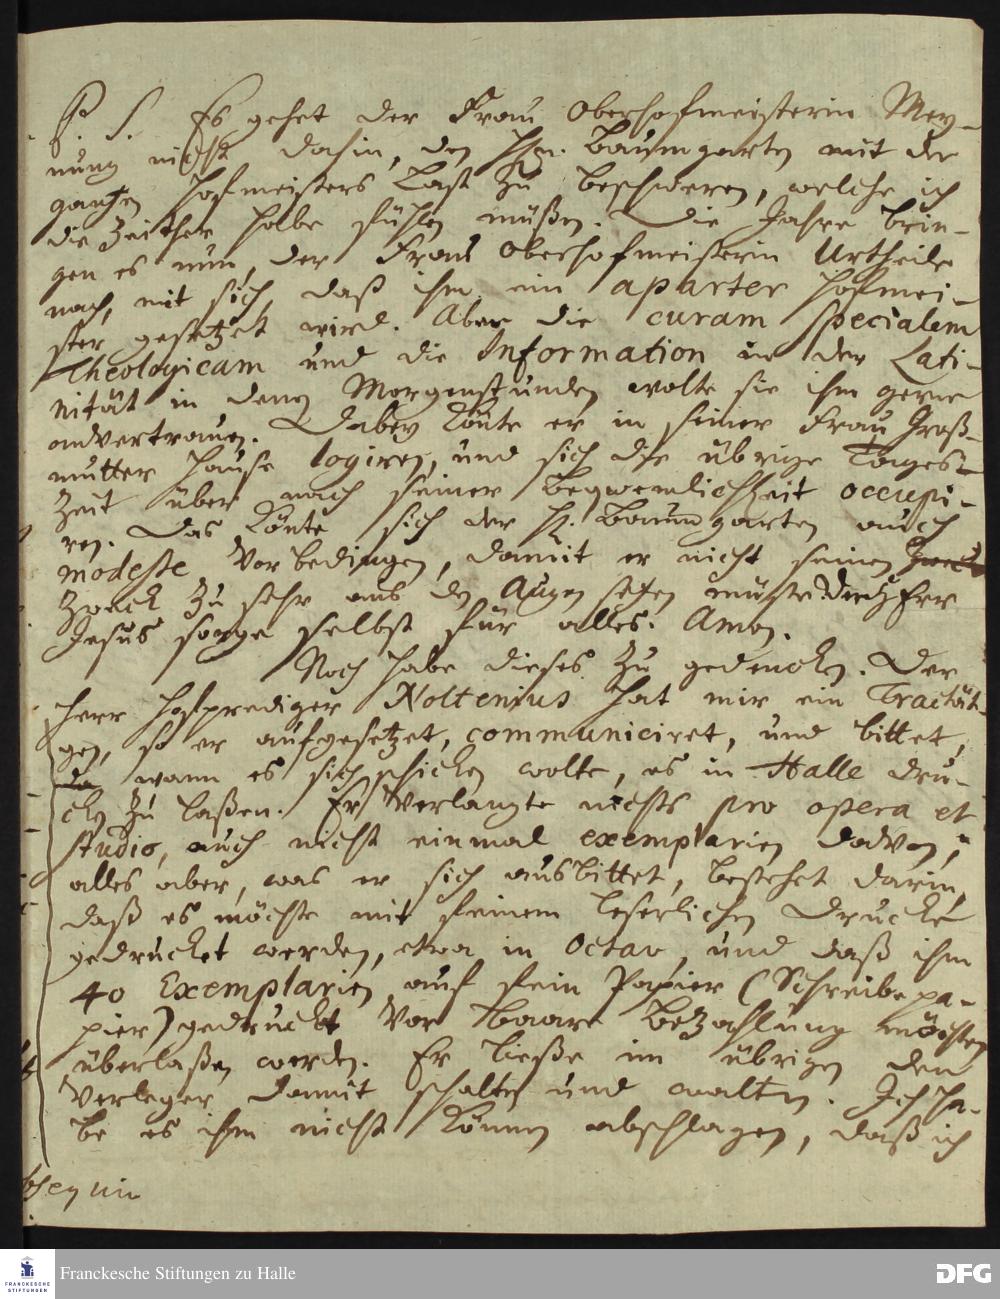 P. S. Es gehet der Frau Oberhofmeisterin Mey-
nung nicht dahin, den Hn. Baumgarten mit der
gantzen Hofmeisters Last zu beschweren, welche ich
die Zeither habe fühlen müßen. Die Jahre brin-
gen es nun, der Frau Oberhofmeisterin Urtheile
nach, mit sich, daß ihm ein aparter Hofmei-
ster gesetzet wird. Aber die curam specialem
Theologicam und die Information in der Lati-
nität in denen Morgenstunden wolte sie ihm gerne
anvertrauen. Dabey könte er in seiner Frau Groß-
mutter Hause logiren, und sich die übrige Tages-
Zeit über nach seiner Beqwemlichkeit occupi-
ren. Das könte sich der H. Baumgarten auch
modeste vorbedingen, damit er nicht seinen
Zweck zu sehr aus den Augen setzen müste. Der Herr
Jesus sorge selbst für alles. Amen.
Noch habe dieses zu gedencken. Der
Herr Hofprediger Noltenius hat mir ein Tractät-
gen, so er aufgesetzet, communiciret, und bittet,
wann es sich schicken wolte, es in Halle dru-
cken zu laßen. Er verlangte nichts pro opera et
studio, auch nicht einmal exemplarien davon,
alles aber, was er sich ausbittet, bestehet darin,
daß es möchte mit feinem leserlichen Drucke
gedrucket werden, etwa in Octav, und daß ihm
40 Exemplarien auf fein Papier (Schreibepa-
pier) gedruckt vor baare Bezahlung möchten
überlaßen werden. Er ließe im übrigen den
Verleger damit schalten und walten. Ich ha-
be es ihm nicht können abschlagen, daß ich
Franckesche Stiftungen zu Halle
FRANCKESCHE STIFTUNGEN
DFG